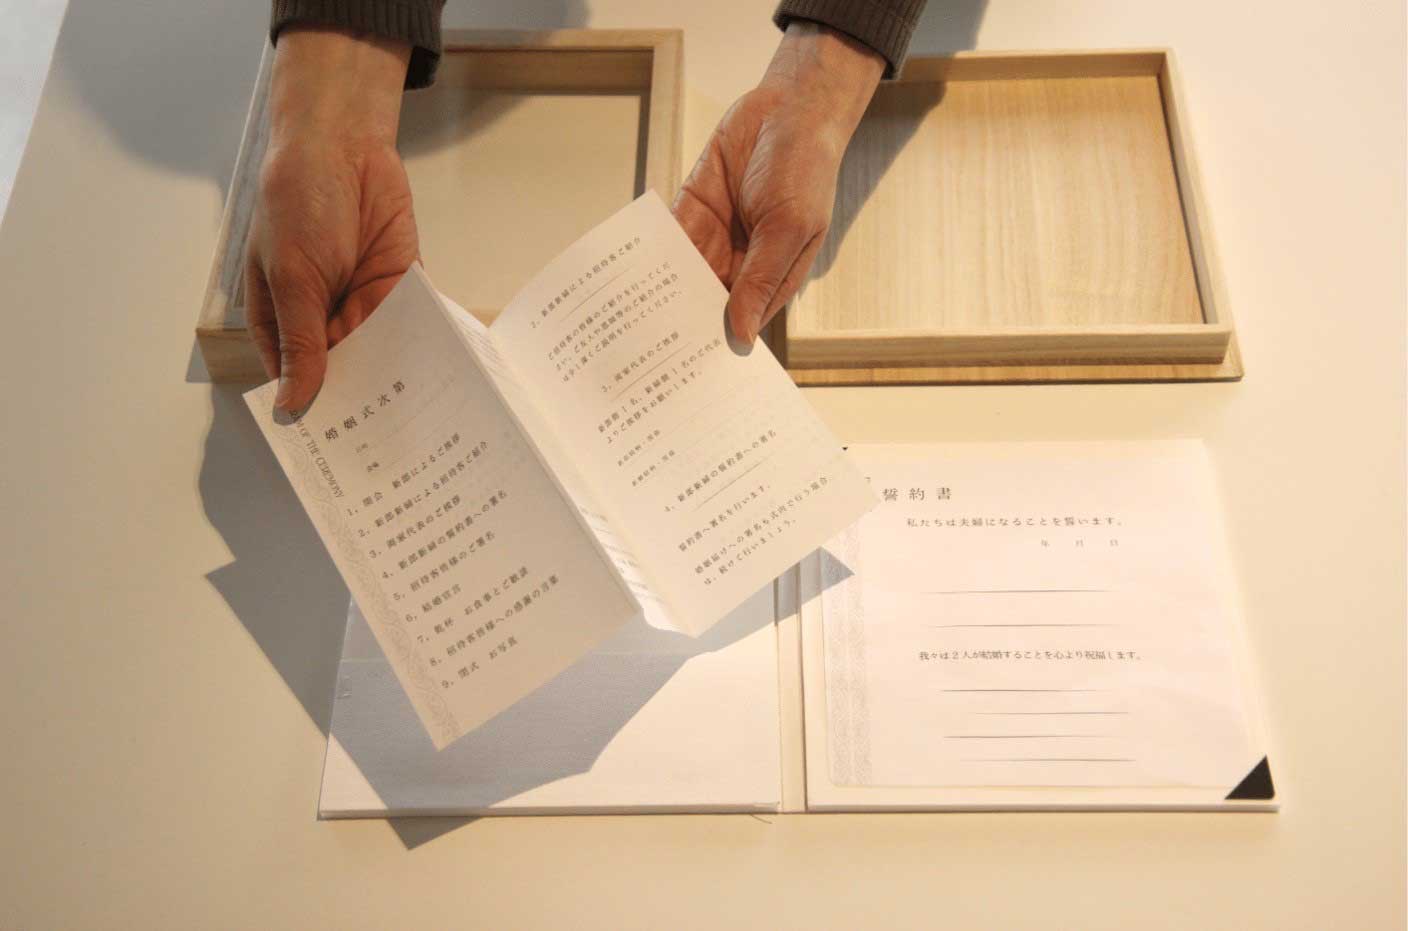 RAM OF THE CEREMONY
婚姻式次第
日時
会場
1，開会　新郎によるご挨拶
2，新郎新婦による招待客ご紹介
3，両家代表のご挨拶
4，新郎新婦の誓約書への署名
5，招待客皆様のご署名
6，結婚宣言
7，乾杯　お食事とご歓談
8，招待客皆様への感謝の言葉
9，閉式　お写真
2，新郎新婦による招待客ご紹介
ご招待客の皆様のご紹介を行ってくだ
さい。ご友人や恩師等のご紹介の場合
は少し深くご説明を行ってください。
3，両家代表のご挨拶
新郎側1名、新婦側1名のご代表
よりご挨拶をお願いします。
4，新郎新婦の誓約書への署名
誓約書へ署名を行います。
婚姻届けへの署名も式内で行う場合
は、続けて行いましょう。
誓約書
私たちは夫婦になることを誓います。
年　月　日
我々は2人が結婚することを心より祝福します。